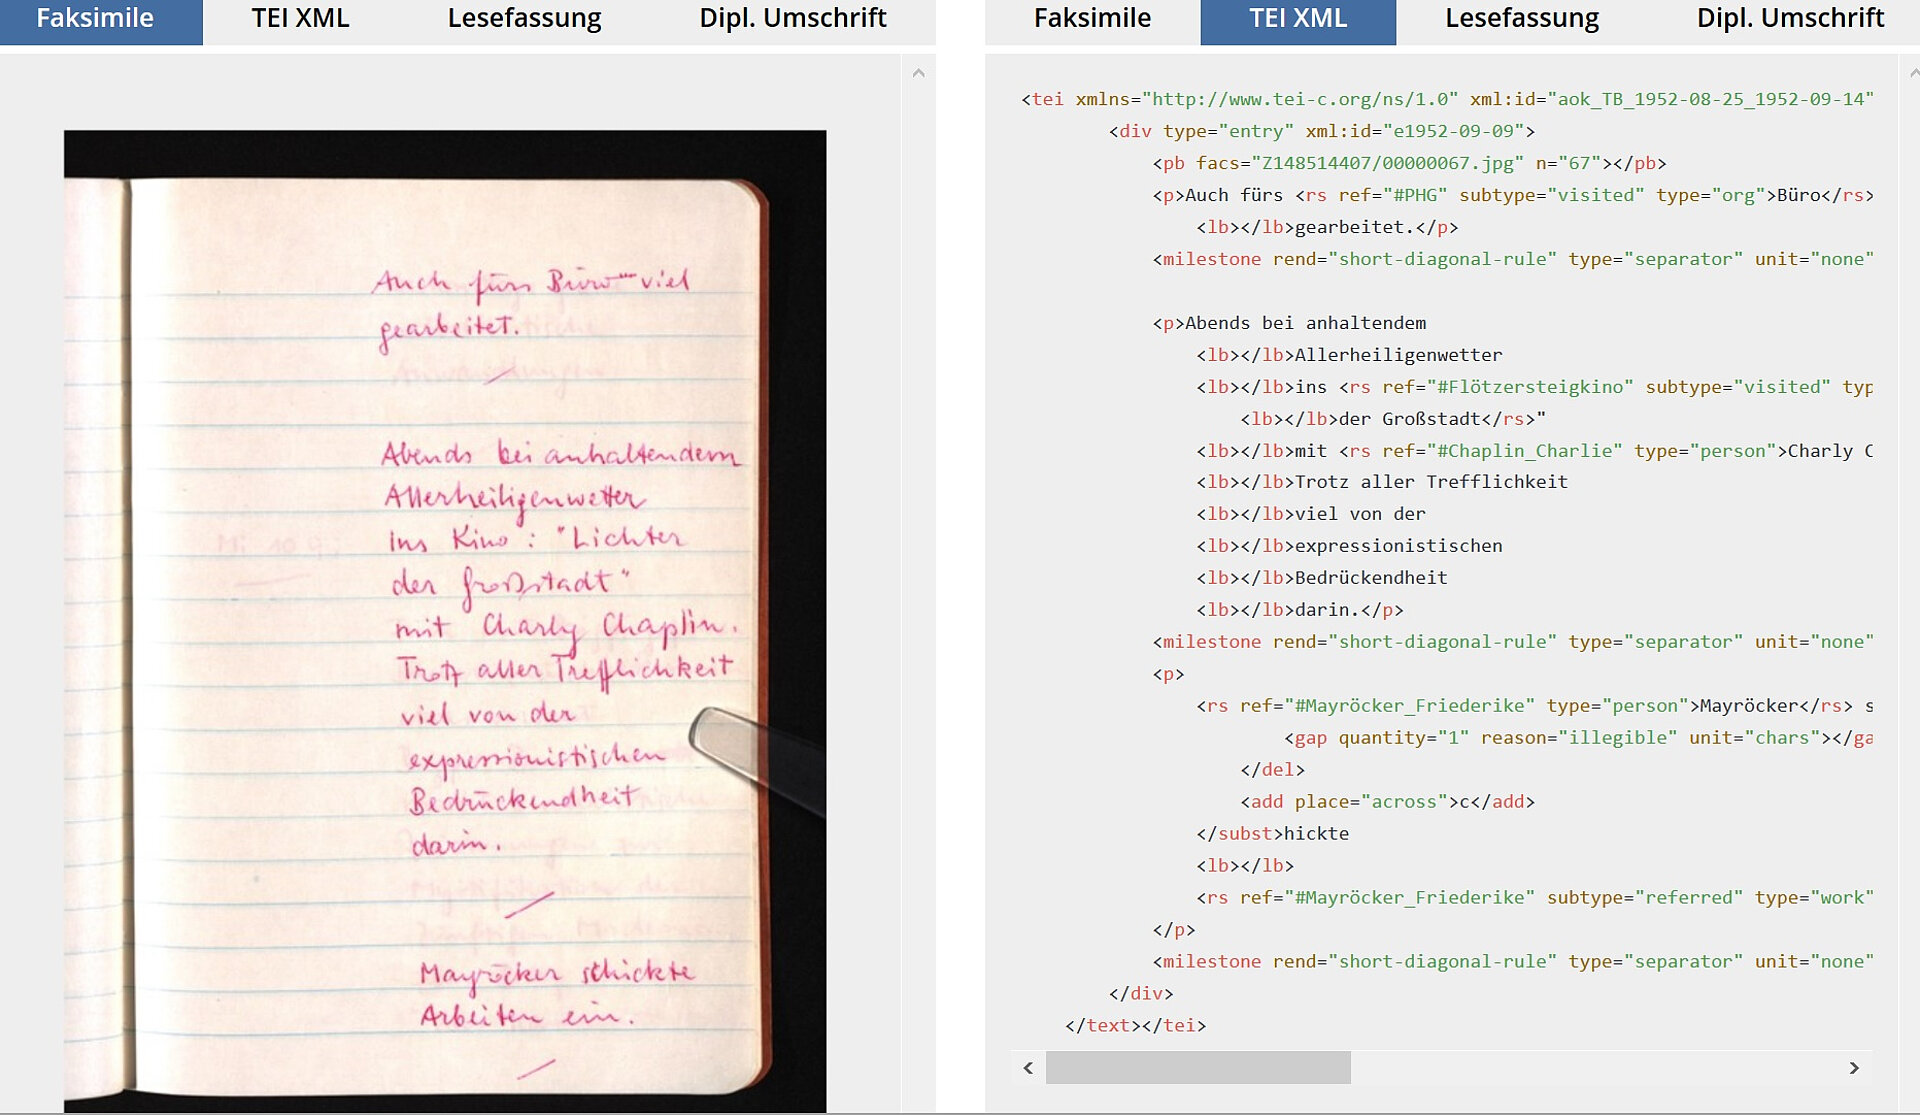 Faksimile TEI XML Lesefassung Dipl. Umschrift
Auch fürs Büro viel
gearbeitet.
Abends bei anhaltendem
Allerheiligenwetter
ins Kino: "Lichter
der Großstadt"
mit Charly Chaplin.
Trotz aller Trefflichkeit
viel von der
expressionistischen
Bedrückendheit
darin.
Mayröcker schickte
Arbeiten ein.
Faksimile TEI XML Lesefassung Dipl. Umschrift
<tei xmlns="http://www.tei-c.org/ns/1.0" xml:id="aok_TB_1952-08-25_1952-09-14"
<div type="entry" xml:id="e1952-09-09">
<pb facs="Z148514407/00000067.jpg" n="67"></pb>
<p>Auch fürs <rs ref="#PHG" subtype="visited" type="org">Büro</rs>
<lb></lb>gearbeitet.</p>
<milestone rend="short-diagonal-rule" type="separator" unit="none"
<p>Abends bei anhaltendem
<lb></lb>Allerheiligenwetter
<lb></lb>ins <rs ref="#Flötzersteigkino" subtype="visited" typ
<lb></lb>der Großstadt</rs>"
<lb></lb>mit <rs ref="#Chaplin_Charlie" type="person">Charly C
<lb></lb>Trotz aller Trefflichkeit
<lb></lb>viel von der
<lb></lb>expressionistischen
<lb></lb>Bedrückendheit
<lb></lb>darin.</p>
<milestone rend="short-diagonal-rule" type="separator" unit="none"
<p>
<rs ref="#Mayröcker_Friederike" type="person">Mayröcker</rs> s
<gap quantity="1" reason="illegible" unit="chars"></ga
</del>
<add place="across">c</add>
</subst>hickte
<lb></lb>
<rs ref="#Mayröcker_Friederike" subtype="referred" type="work"
</p>
<milestone rend="short-diagonal-rule" type="separator" unit="none"
</div>